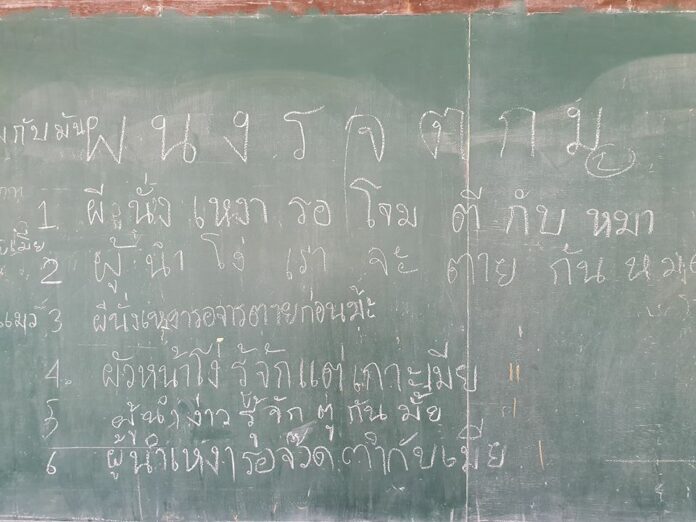 กับมัน ผ น ง ร จ ต ก ม
1 ผี นั่ง เหงา รอ โจม ตี กับ หมา
2 ผู้ นำ โง่ เรา จะ ตาย กัน หมด
แมว 3 ผีนั่งเหงารอจารตายก่อนม้ะ
4. ผัวหน้าโง่ รู้จักแต่เกาะเมีย
5 ผู้นำง่าว รู้จัก ตู่ กัน มั้ย
6 ผู้นำเหงารอจรวด ตำกับเมีย